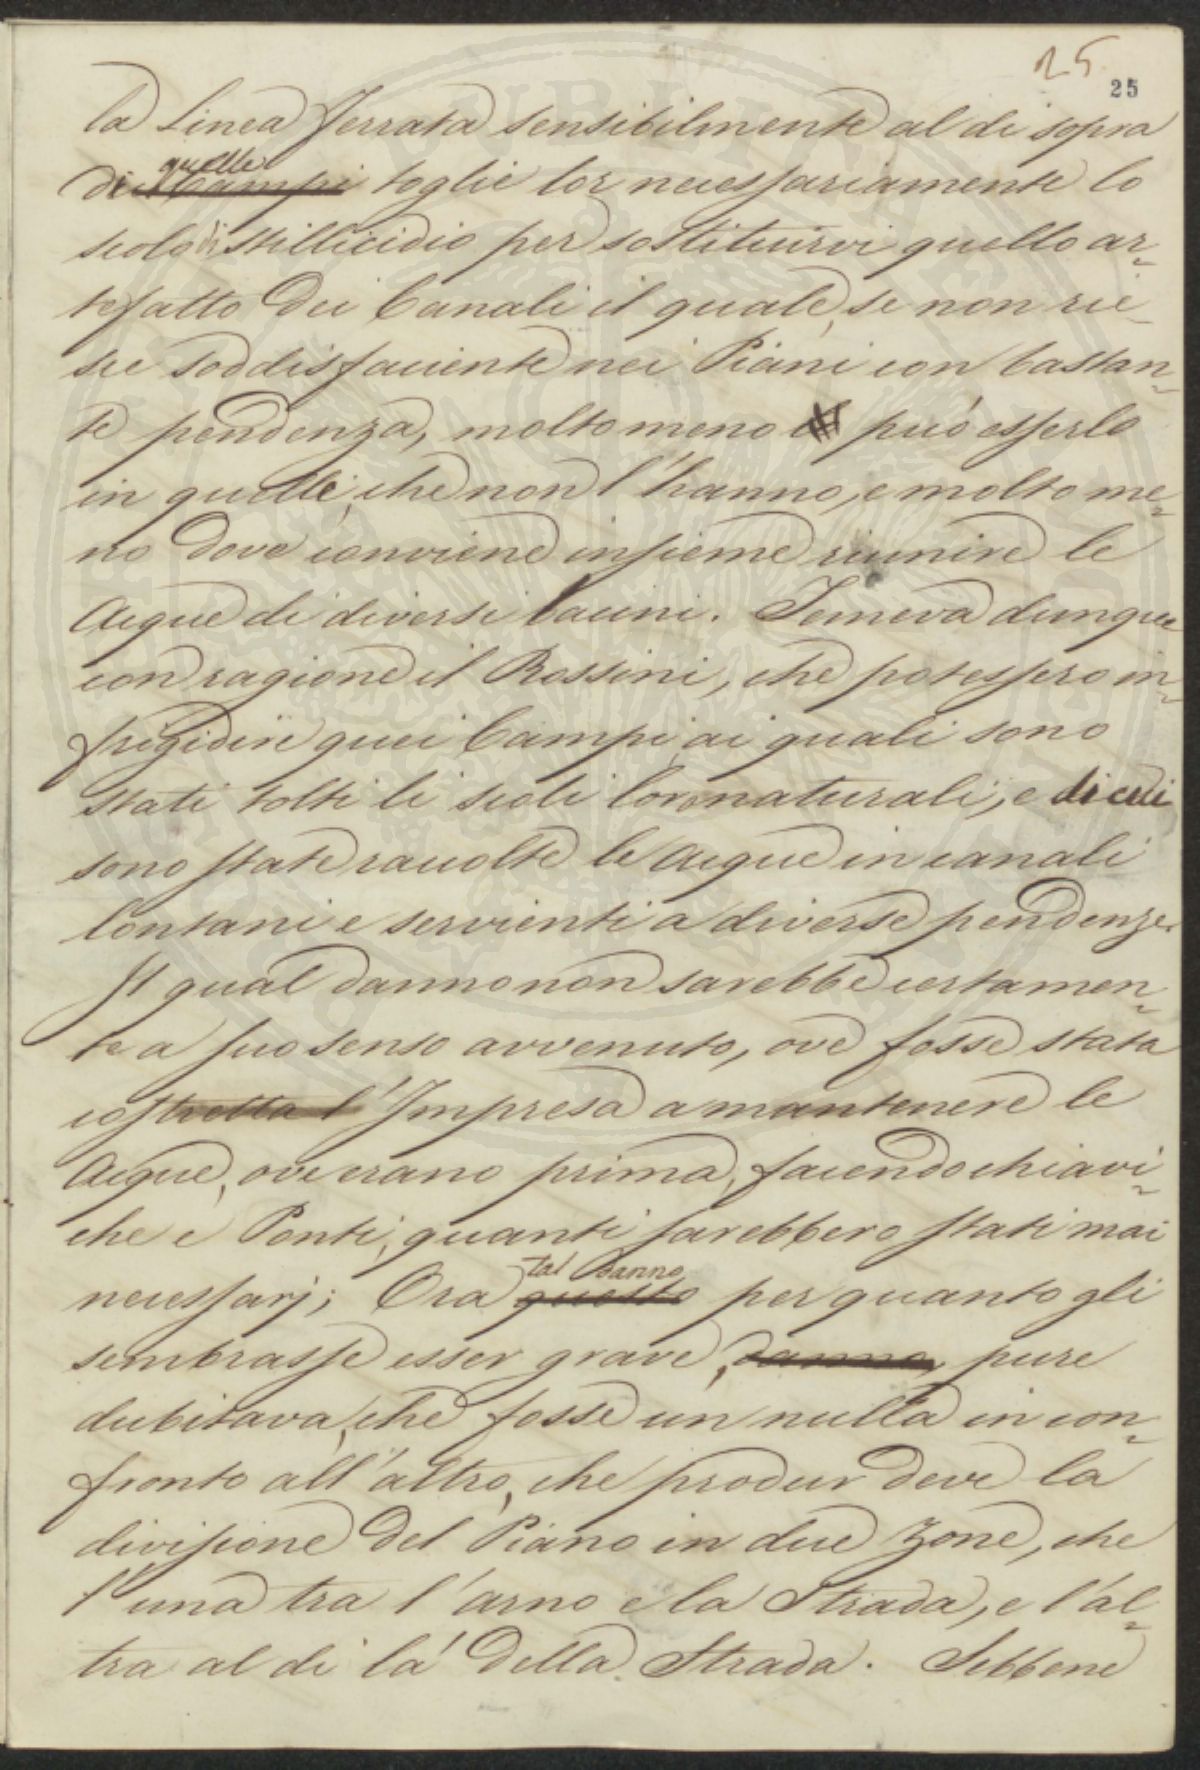 25
25
la Linea Ferrata sensibilmente al di sopra
di quelle ~~Campi~~ toglie lor necessariamente lo
scolo di stillicidio per sostituirvi quello ar-
tefatto dei Canali il quale, se non rie-
sce soddisfaciente nei Piani con bastan-
te pendenza, molto meno può esserlo
in quelli, che non l'hanno, e molto me-
no dove conviene insieme riunire le
Acque di diversi bacini. Temeva dunque
con ragione il Rossini, che potessero in-
frigidire quei Campi, ai quali sono
stati tolti li scoli loro naturali, e di cui
sono state raccolte le Acque in canali
lontani e servienti a diverse pendenze.
Il qual danno non sarebbe certamen-
te a suo senso avvenuto, ove fosse stata
costretta l'Impresa a mantenere le
Acque, ove erano prima, facendo chiavi-
che e Ponti, quanti sarebbero stati mai
necessarj; Ora ~~questo~~ tal danno per quanto gli
sembrasse esser grave, ~~danno,~~ pure
dubitava, che fosse un nulla in con-
fronto all'altro, che produr deve la
divisione del Piano in due Zone, che
l'una tra l'arno e la Strada, e l'al-
tra al di là della Strada. Sebbene